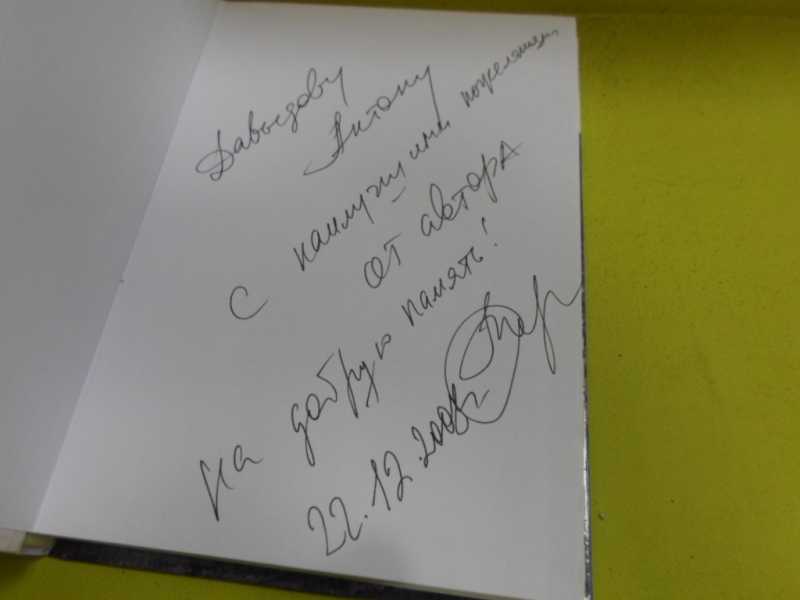 Давыдову
Антону
с наилучшими пожеланиями
от автора
на добрую память!
22.12.200